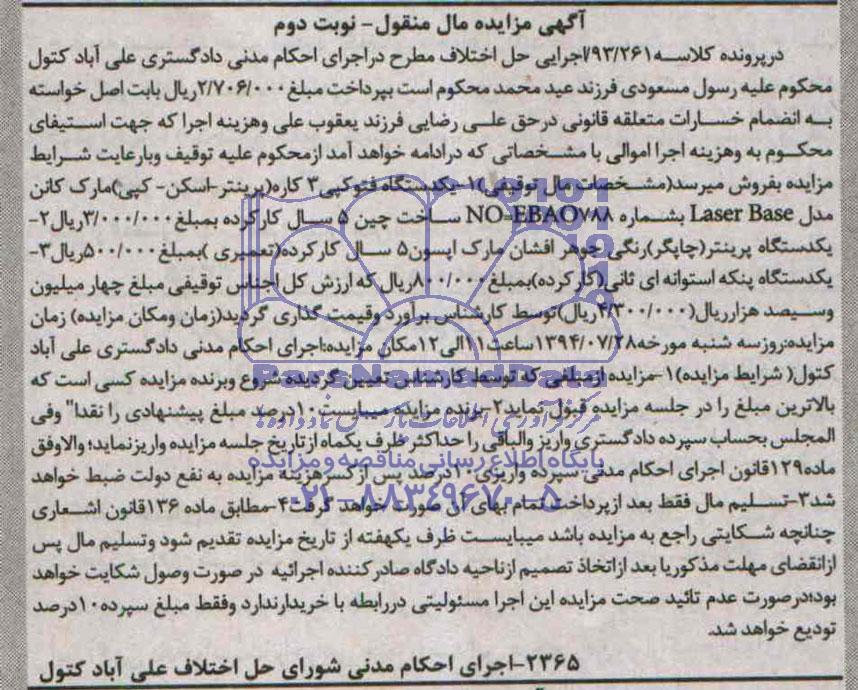 آگهی مزایده مال منقول- نوبت دوم
درپرونده کلاسه ۹۳/۲۶۱/اجرایی حل اختلاف مطرح دراجرای احکام مدنی دادگستری علی آباد کتول
محکوم علیه رسول مسعودی فرزند عید محمد محکوم است بپرداخت مبلغ ۲/۷۰۶/۰۰۰ریال بابت اصل خواسته
به انضمام خسارات متعلقه قانونی درحق علی رضایی فرزند یعقوب علی وهزینه اجرا که جهت استیفای
محکوم به وهزینه اجرا اموالی با مشخصاتی که درادامه خواهد آمد ازمحکوم علیه توقیف وبارعایت شرایط
مزایده بفروش میرسد(مشخصات مال توقیفی)۱-یکدستگاه فتوکپی۳ کاره(پرینتر-اسکن- کپی)مارک کانن
مدل Laser Base بشماره NO-EBAO۷۸۸ ساخت چین ۵ سال کارکرده بمبلغ۳/۰۰۰/۰۰۰ریال۲-
یکدستگاه پرینتر(چاپگر)رنگی جوهر افشان مارک اپسون۵ سال کارکرده(تعمیری )بمبلغ۵۰۰/۰۰۰ریال۳-
یکدستگاه پنکه استوانه ای ثانی(کارکرده)بمبلغ۸۰۰/۰۰۰ریال که ارزش کل اجناس توقیفی مبلغ چهار میلیون
وسیصد هزارریال(۴/۳۰۰/۰۰۰ریال)توسط کارشناس برآورد وقیمت گذاری گردید(زمان ومکان مزایده) زمان
مزایده:روزسه شنبه مورخه۱۳۹۴/۰۷/۲۸ساعت۱۱الی۱۲مکان مزایده:اجرای احکام مدنی دادگستری علی آباد
کتول( شرایط مزایده)۱-مزایده ازمبلغی که توسط کارشناس تعیین گردیده شروع وبرنده مزایده کسی است که
بالاترین مبلغ را در جلسه مزایده قبول نماید۲-برنده مزایده میبایست۱۰درصد مبلغ پیشنهادی را نقدا" وفی
المجلس بحساب سپرده دادگستری واریز والباقی را حداکثر ظرف یکماه ازتاریخ جلسه مزایده واریزنماید؛ والاوفق
ماده۱۲۹قانون اجرای احکام مدنی سپرده واریزی۱۰درصد پس ازکسرهزینه مزایده به نفع دولت ضبط خواهد
شد۳-تسلیم مال فقط بعد ازپرداخت تمام بهای آن صورت خواهد گرفت۴-مطابق ماده ۱۳۶قانون اشعاری
چنانچه شکایتی راجع به مزایده باشد میبایست ظرف یکهفته از تاریخ مزایده تقدیم شود وتسلیم مال پس
ازانقضای مهلت مذکوریا بعد ازاتخاذ تصمیم ازناحیه دادگاه صادرکننده اجرائیه در صورت وصول شکایت خواهد
بود؛درصورت عدم تائید صحت مزایده این اجرا مسئولیتی دررابطه با خریدارندارد وفقط مبلغ سپرده۱۰درصد
تودیع خواهد شد.
۲۳۶۵-اجرای احکام مدنی شورای حل اختلاف علی آباد کتول
ParsNamadData
پایگاه اطلاع رسانی مناقصه و مزایده
۰۲۱-۸۸۳۴۹۶۷۰-۵